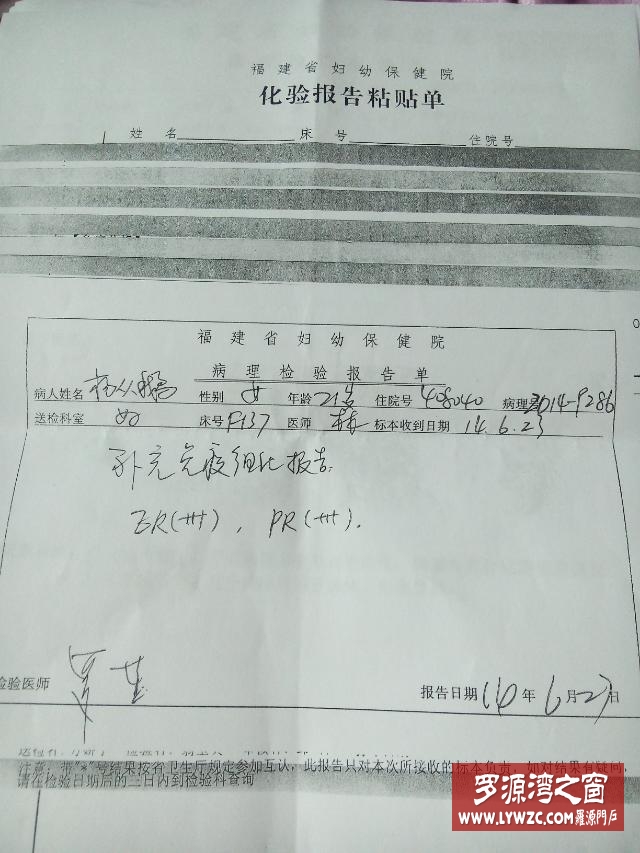 福建省妇幼保健院
化验报告粘贴单
姓名 床号 住院号
福建省妇幼保健院
病理检验报告单
病人姓名 性别 女 年龄 21岁 住院号 408040 病理号 2014-9286
送检科室 妇 床号 P137 医师 林 标本收到日期 14.6.23
补充免疫组化报告:
ER(卅), PR(卅).
检验医师 报告日期 14年6月27日
注意:带"*"号结果按省卫生厅规定参加互认,此报告只对本次所接收的标本负责,如对结果有疑问,
请在检验日期后的三日内到检验科查询
罗源湾之窗
www.LYWZC.com 羅源門戶